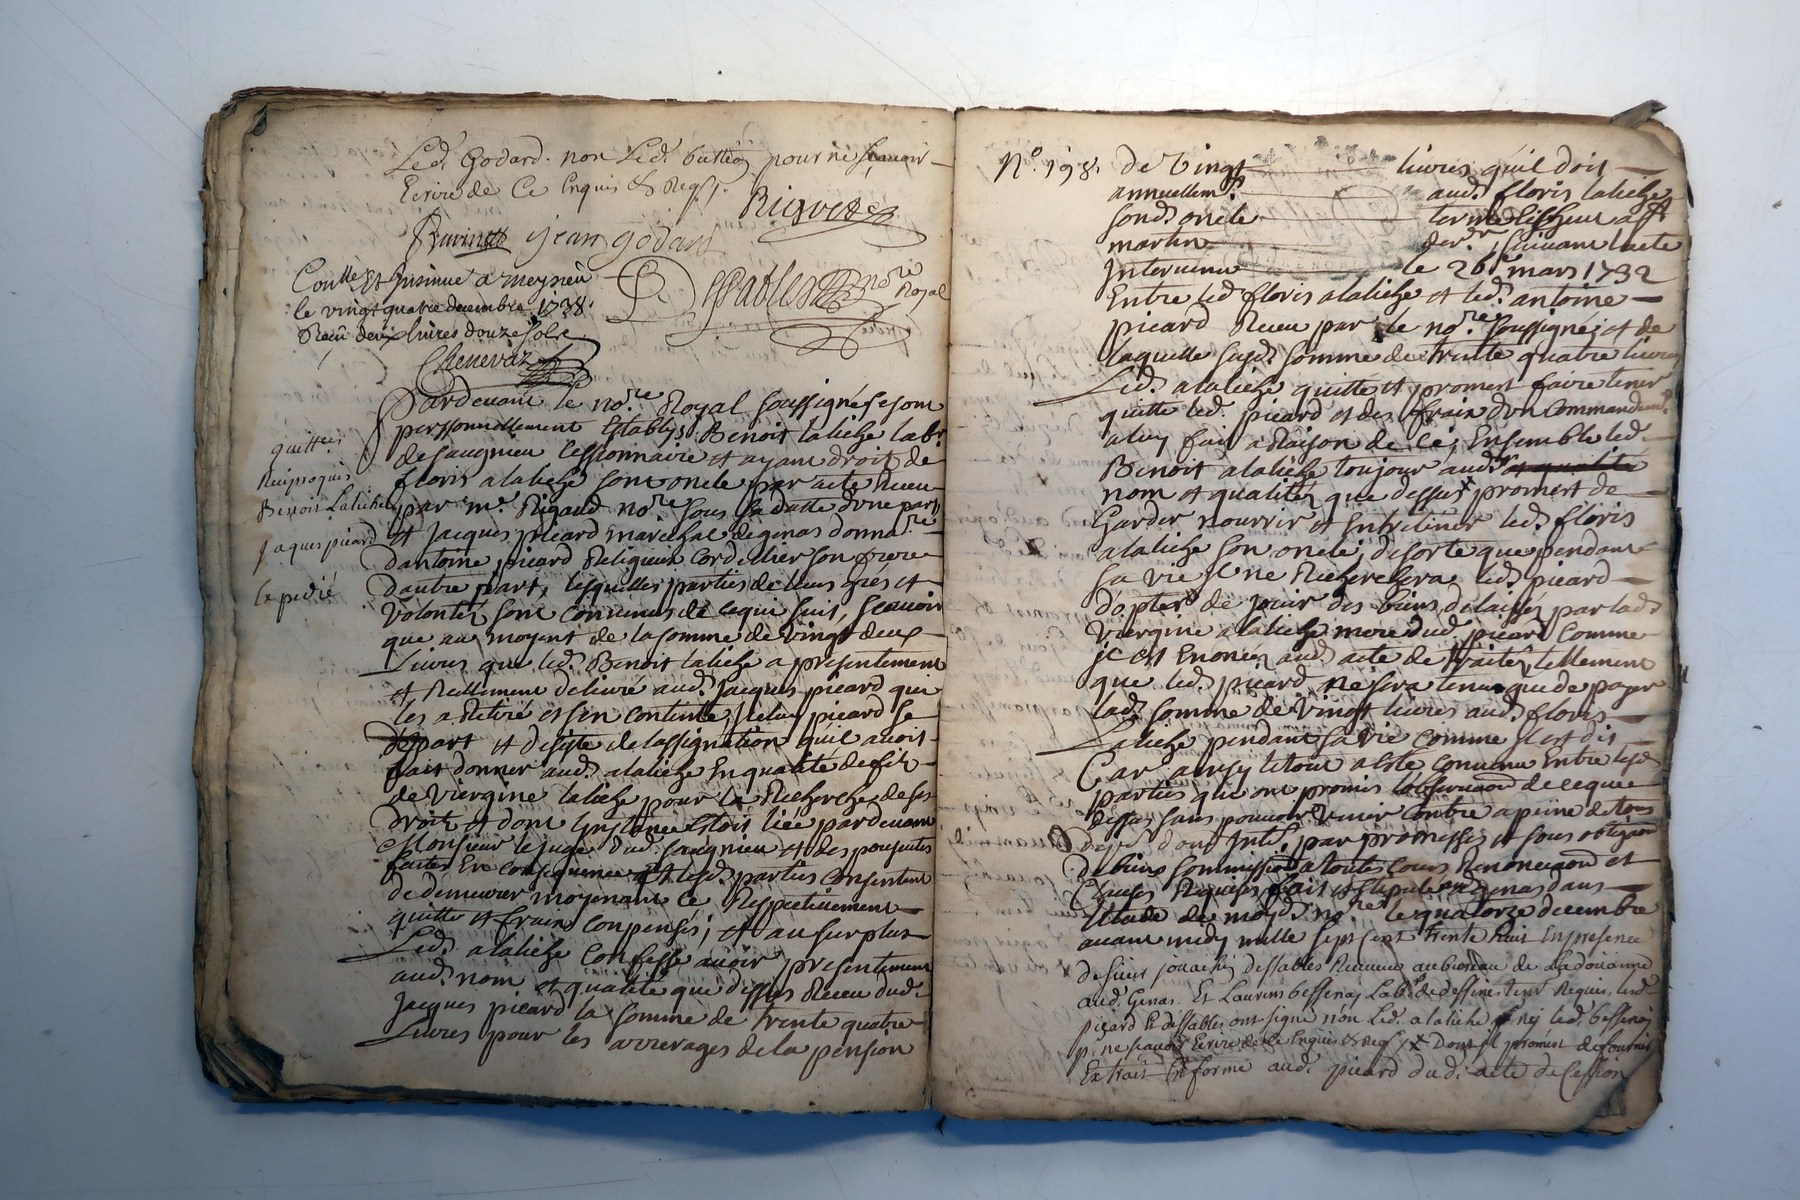 Led. Godard. non Led. buttéoz pour ne scavoir
Ecrire de Ce Enquis & Req.
Riguet
Ravinat jean godard
Conlle Et Insinué a meysieu
le vingt quatre decembre 1738.
Receu deux livres douze sols
Chenevaz
Dessables nore Royal
Pardevant le nore Royal soussigné se sont
personnellement Establys Benoit laliche labr
de saugnieu Cessionnaire et ayant droit de
floris alaliche son oncle par acte Receu
par mr Rigaud nore sous sa datte d'une part,
et Jacques picard marechal de genas donnare
dantoine picard Religieux Cordellier son frere
dautre part, lesquelles parties de leurs grés et
volontés sont convenus de ce qui suit, scavoir
que au moyent de la somme de vingt deux
Livres que led. Benoit laliche a presentement
et Reellement delivré aud. Jacques picard qui
les a Retiré et s'en contente, Iceluy picard se
depart et desiste de lassignation quil avoit
fait donner aud. alaliche En qualité de fils
de viergine laliche pour la Recherche de ses
droits et dont Instance Estoit liée pardevant
Monsieur le juge dud. saugnieu et des poursuites
faites En consequence et lesd. parties consentent
de demeurer moyenant ce Respectivement
quittes et frais compensés; et au surplus
Led. alaliche Confesse avoir presentement
aud. nom et qualité que dessus Receu dud.
Jacques picard la somme de trente quatre
Livres pour les arrerages de la pension
quittces
Reciproques
Benoit Laliche
jaques picard
Expedié
No. 198. de vingt livres qu'il doit
annuellemt aud. floris laliche
sond. oncle terme Escheu a st
martin derr suivant lacte
Intervenu le 26e mars 1732
Entre led. floris alaliche et led. antoine
picard Receu par le nore soussigné; et de
laquelle susd. somme de trente quatre livres
Led. alaliche quitte et promest faire tenir
quitte led. picard et des frais d'un Commandemt
a luy fait a Raison de ce; Ensemble led.
Benoit alaliche toujour aud. et qualité
nom et qualités que dessus promest de
Garder nourrir et Entretenir led. floris
alaliche son oncle, de sorte que pendant
sa vie Il ne Recherchera led. picard
d'opter de jouir des biens delaissés par lad.
viergine alaliche mere dud. picard Comme
il est Enoncés aud. acte de traité, tellement
que led. picard ne sera tenu que de payer
lad. somme de vingt livres aud. floris
Laliche pendant sa vie comme Il est dit
Car ainsy le tout a Esté Convenu Entre lesd.
parties qui ont promis lobservaon de ce que
dessus sans pouvoir venir Contre a peine de tous
despens dom. Inth. par promesses et sous obligaon
de biens soummission a toutes Cours Renonciaon et
Clauses Requises fait et stipulé a genas dans
létude de moyd. nore le quatorze decembre
avant midy mille sept cent trente huit En presence
de sieur Dessables Receveur au bureau de La doüanne
aud. Genas. Et Laurens bessenay Labr. de tesm. Requis, led.
picard & dessables ont signé non Led. alaliche ny led. bessenay
pr ne scavoir Ecrire de ce Enquis & Req. Dont Il promest de fournir
Extrait En forme aud. picard dud. acte de Cession